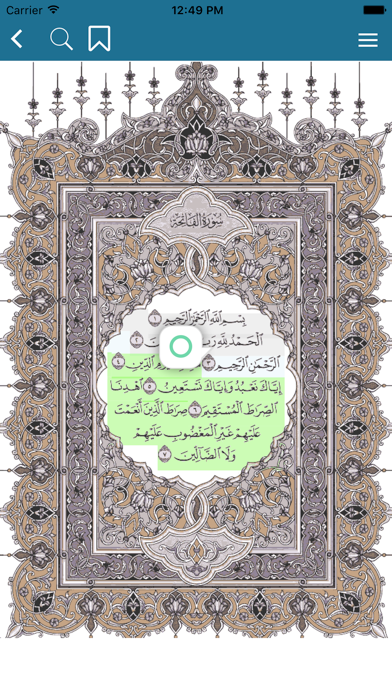 Carrier 12:49 PM
سُورَةُ الفَاتِحَةِ
بِسْمِ اللَّهِ الرَّحْمَٰنِ الرَّحِيمِ ١
الْحَمْدُ لِلَّهِ رَبِّ ٢
الرَّحْمَٰنِ الرَّحِيمِ ٣ الدِّينِ ٤
إِيَّاكَ نَعْبُدُ وَإِيَّاكَ نَسْتَعِينُ ٥ اهْدِنَا
الصِّرَاطَ الْمُسْتَقِيمَ ٦ صِرَاطَ الَّذِينَ أَنْعَمْتَ
عَلَيْهِمْ غَيْرِ الْمَغْضُوبِ عَلَيْهِمْ
وَلَا الضَّالِّينَ ٧